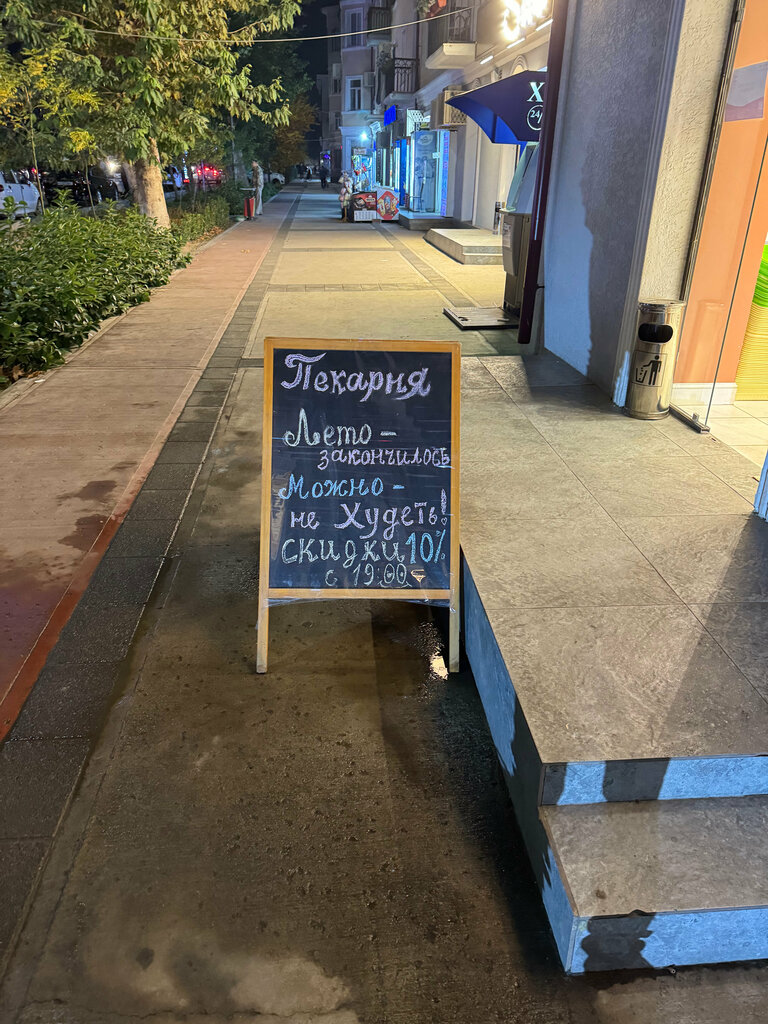 Пекарня
Лето -
закончилось
Можно -
не Худеть!
скидки 10%
с 19:00
Х
24/